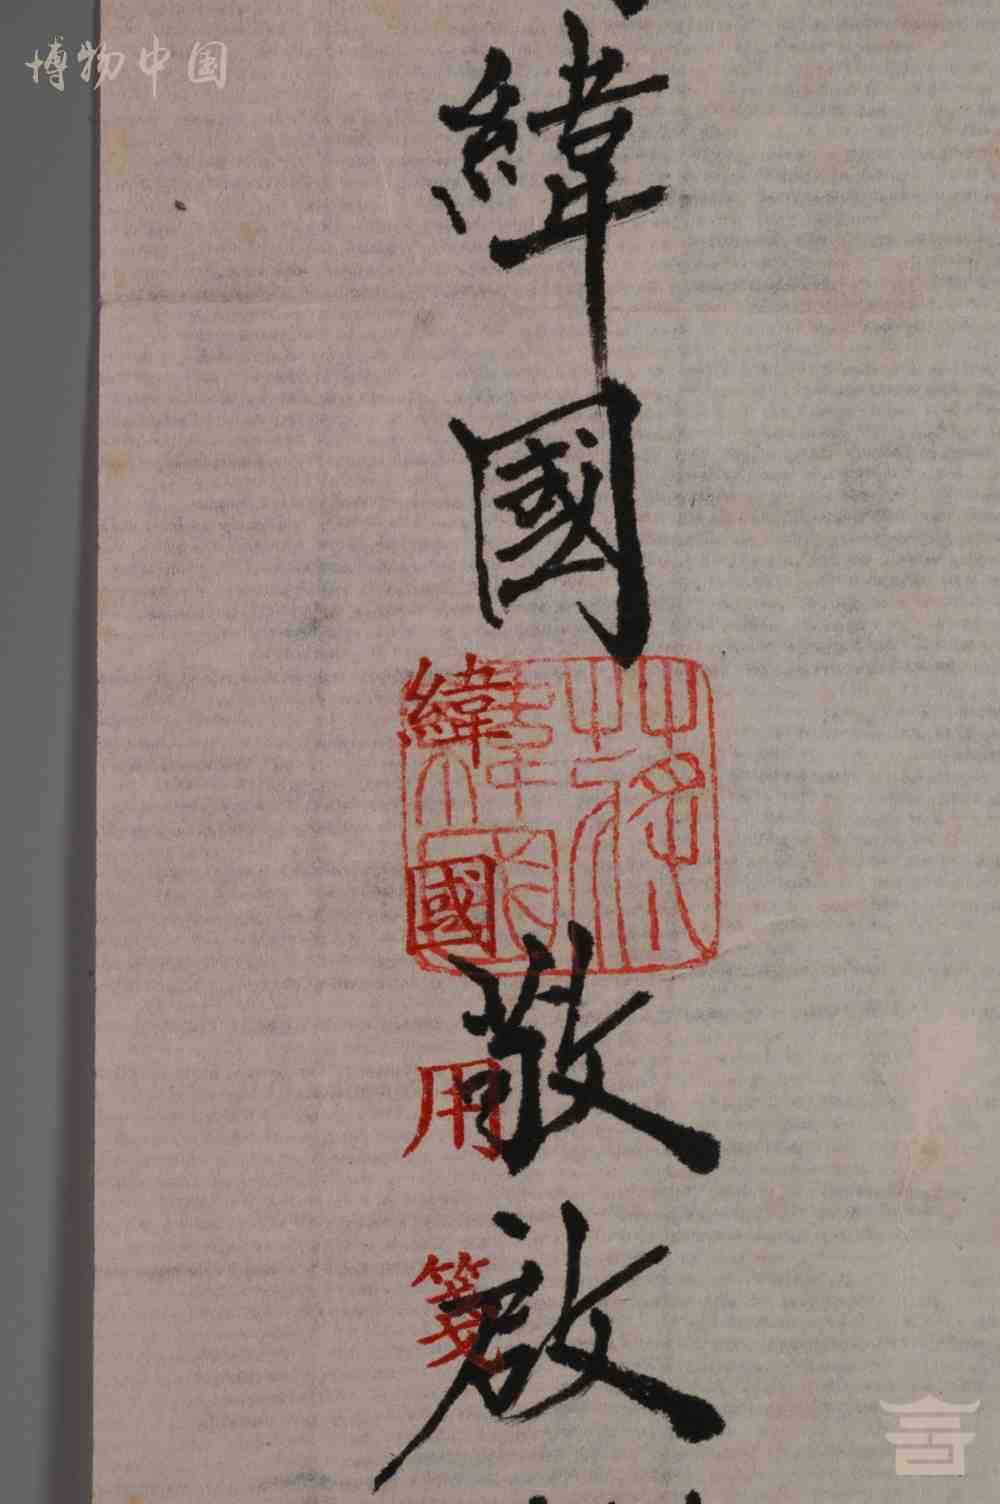 博物中国
緯國敬啟
蔣緯國
緯國用箋